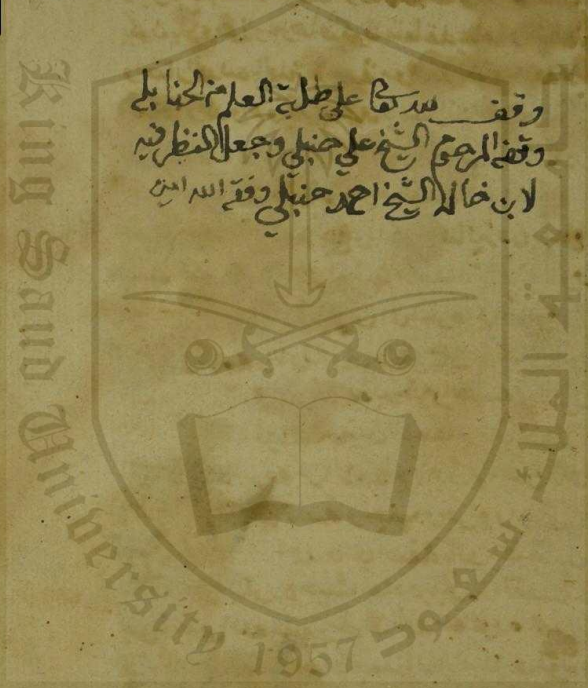 وقف لله تعالى على طلبة العلم من الحنابلة
وقفه المرحوم الشيخ علي حنبلي وجعل النظر فيه
لابن خاله الشيخ احمد حنبلي وفقه الله امين
King Saud University
1957
جامعة الملك سعود